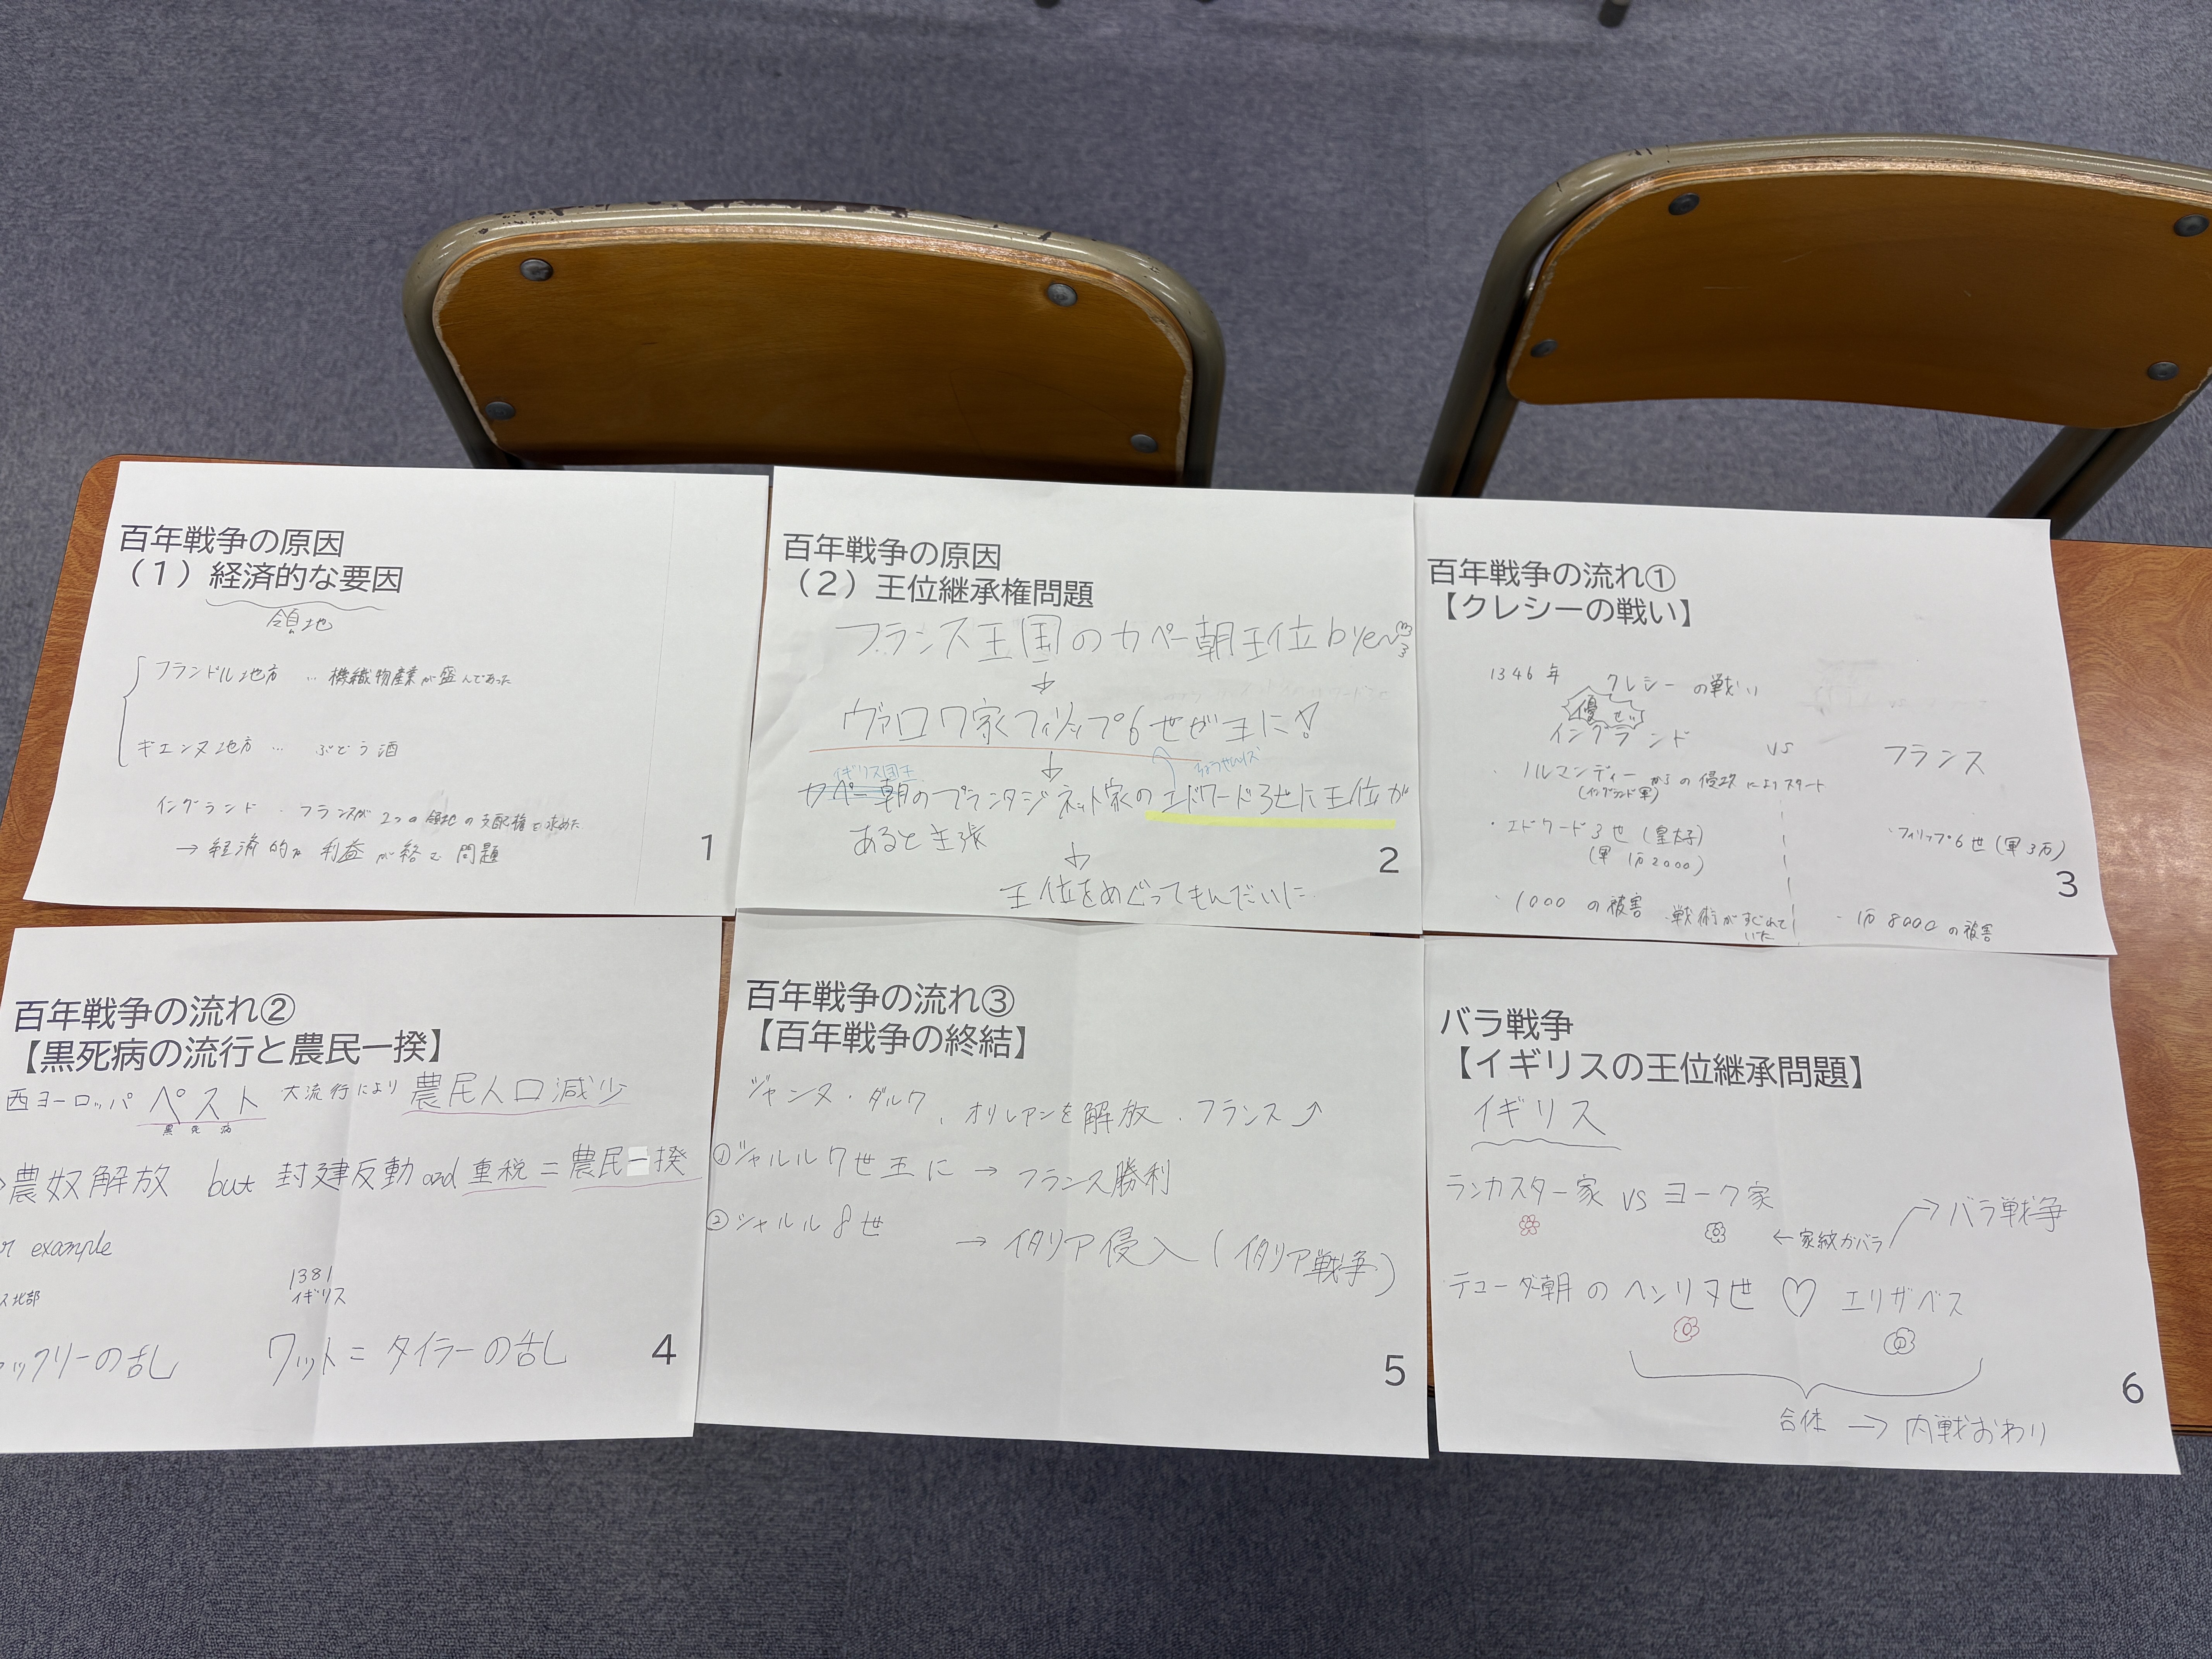 百年戦争の原因
（1）経済的な要因
領地
フランドル地方 … 機織物産業が盛んであった
ギエンヌ地方 … ぶどう酒
イングランド・フランスが2つの領地の支配権を求めた
→ 経済的な利益が絡む問題
1
百年戦争の原因
（2）王位継承権問題
フランス王国のカペー朝王位bye〜
↓
ヴァロワ家フィリップ6世が王に!
↓
イギリス国王
カペー朝のプランタジネット家のエドワード3世に王位が
あると主張
↓
王位をめぐってもんだいに
2
百年戦争の流れ①
【クレシーの戦い】
1346年 クレシーの戦い
優せい
イングランド vs フランス
・ノルマンディーからの侵攻によりスタート
(イングランド軍)
・エドワード3世（皇太子） ・フィリップ6世（軍3万）
（軍 1万2000）
・1000の被害 ・戦術がすぐれて ・1万8000の被害
いた
3
百年戦争の流れ②
【黒死病の流行と農民一揆】
西ヨーロッパ ペスト 大流行により 農民人口減少
黒死病
農奴解放 but 封建反動 and 重税 = 農民一揆
example
1381
ス北部 イギリス
ックリーの乱 ワット=タイラーの乱
4
百年戦争の流れ③
【百年戦争の終結】
ジャンヌ・ダルク、オルレアンを解放・フランス↗
①シャルル7世王に → フランス勝利
②シャルル8世
→ イタリア侵入（イタリア戦争）
5
バラ戦争
【イギリスの王位継承問題】
イギリス
ランカスター家 vs ヨーク家
←家紋がバラ → バラ戦争
テューダー朝のヘンリ7世 ♡ エリザベス
合体 → 内戦おわり
6